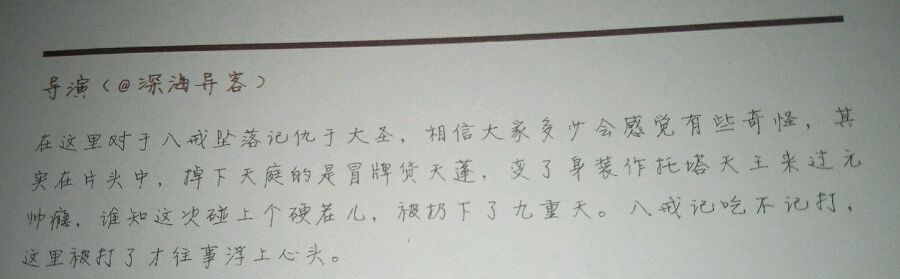 导演(@深海异客)
在这里对于八戒坠落记仇于大圣,相信大家多少会感觉有些奇怪,其
实在片头中,掉下天庭的是冒牌货天蓬,变了身装作托塔天王来过元
帅瘾,谁知这次碰上个硬茬儿,被扔下了九重天。八戒记吃不记打,
这里被打了才往事浮上心头。